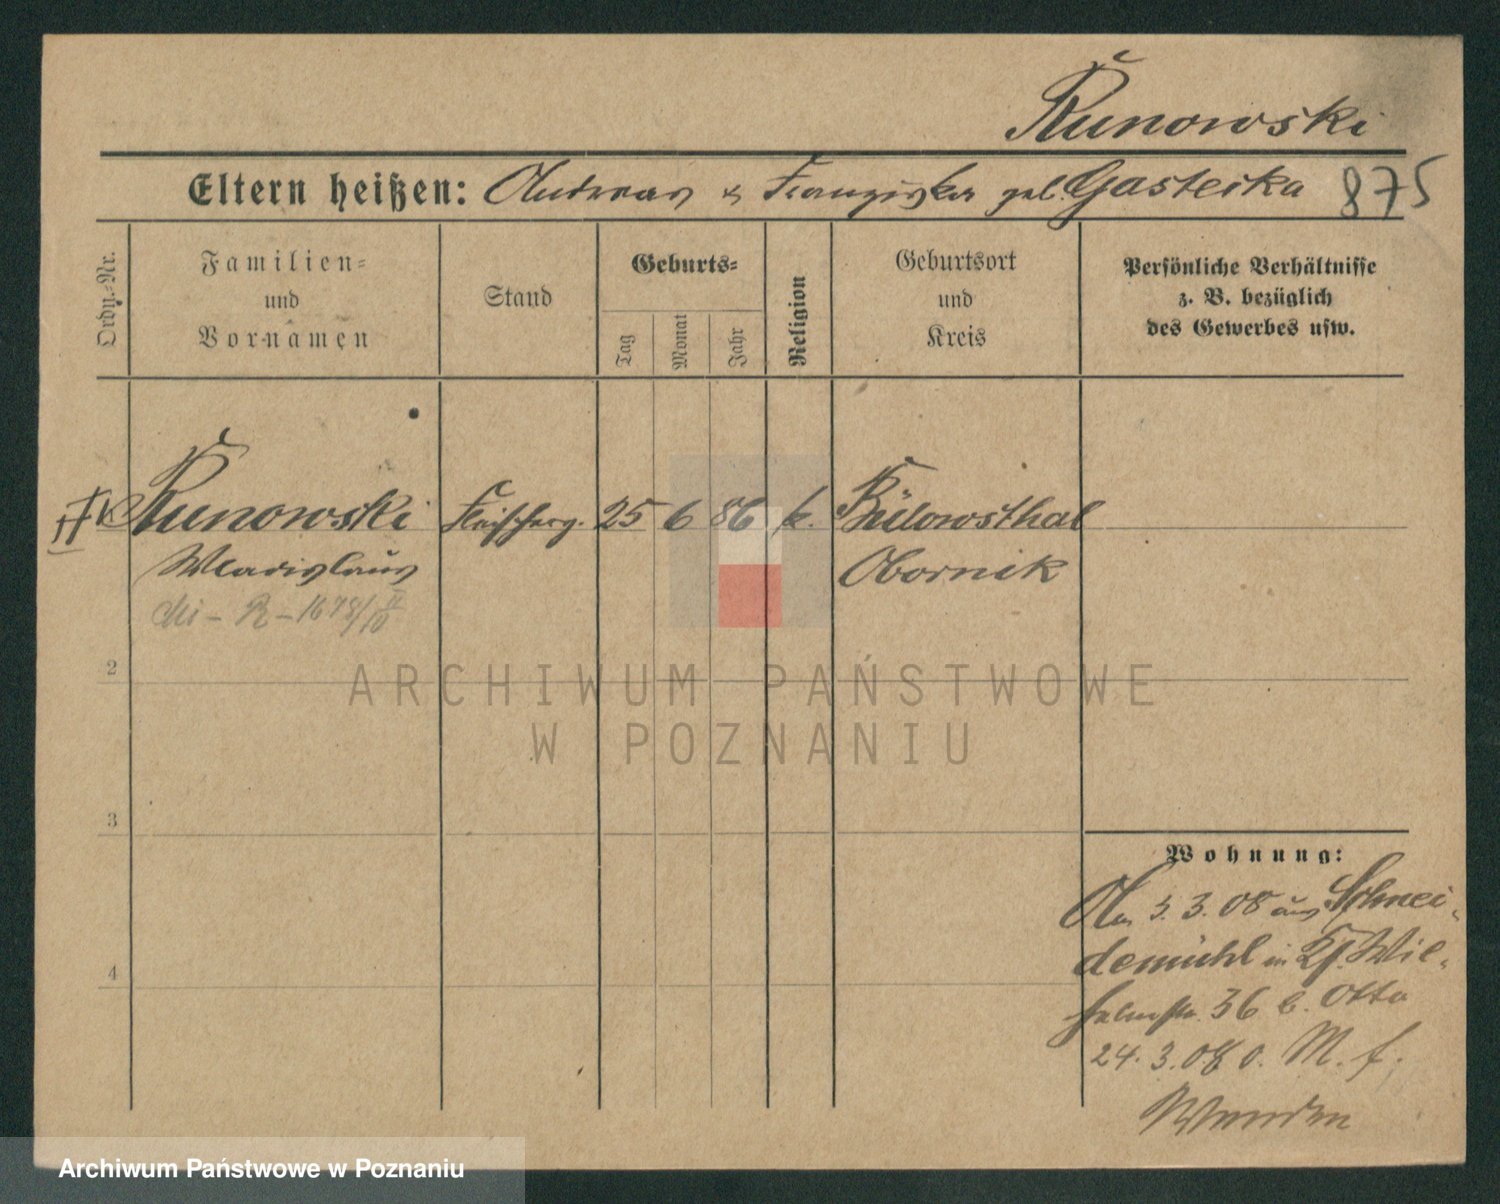 Runowski
Eltern heißen: Andreas & Franziska geb. Gasterka 875
Ordn.-Nr.
Familien-
und
Vornamen
Stand
Geburts-
Tag
Monat
Jahr
Religion
Geburtsort
und
Kreis
Persönliche Verhältnisse
z. B. bezüglich
des Gewerbes usw.
Runowski Fleischerg. 25 6 86 k. Bülowsthal
Wladislaus Obornik
2
3
4
Wohnung:
5.3.08 aus Schnei-
demühl in Kl. Wil-
helmstr. 36 b. Otto
24.3.08 M. f.
ARCHIWUM PAŃSTWOWE
W POZNANIU
Archiwum Państwowe w Poznaniu